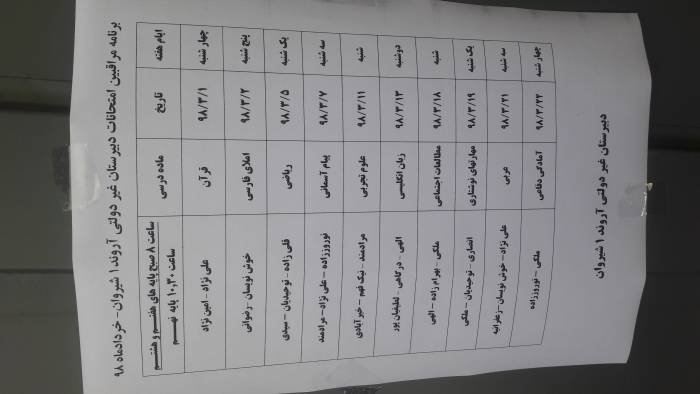 برنامه مراقبین امتحانات دبیرستان غیر دولتی آروند ۱ شیروان - خردادماه ۹۸
ایام هفته تاریخ ماده درسی ساعت ۸ صبح پایه های هفتم و هشتم
ساعت ۱۰،۳۰ پایه نهم
چهار شنبه ۹۸/۳/۱ قرآن علی نژاد - امین نژاد
پنج شنبه ۹۸/۳/۲ املای فارسی خوش نویسان - رضوانی
یک شنبه ۹۸/۳/۵ ریاضی قلی زاده - توحیدیان - سیدی
سه شنبه ۹۸/۳/۷ پیام آسمانی نوروززاده - علی نژاد - مرادمند
شنبه ۹۸/۳/۱۱ علوم تجربی مرادمند - نیک فهم - خیر آبادی
دوشنبه ۹۸/۳/۱۳ زبان انگلیسی الهی - درگاهی - لطیفیان پور
شنبه ۹۸/۳/۱۸ مطالعات اجتماعی ملکی - بهرام زاده - الهی
یک شنبه ۹۸/۳/۱۹ مهارتهای نوشتاری انصاری - توحیدیان - ملکی
سه شنبه ۹۸/۳/۲۱ عربی علی نژاد - خوش نویسان - زعفرانیه
چهار شنبه ۹۸/۳/۲۲ آمادگی دفاعی ملکی - نوروززاده
دبیرستان غیر دولتی آروند ۱ شیروان